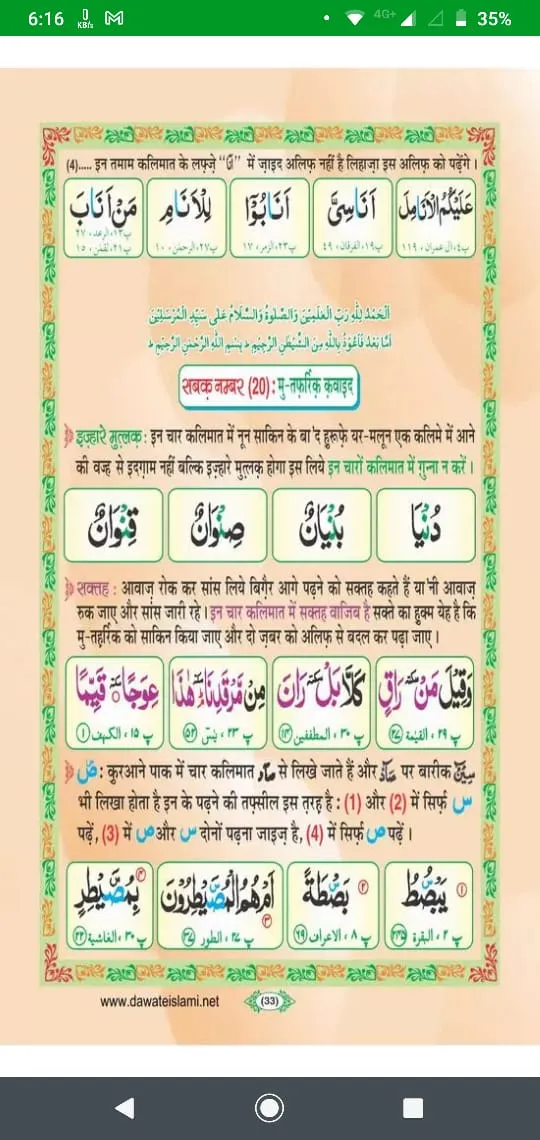 6:16 0 KB/s 4G+ 35%
(4)..... इन तमाम कलिमात के लफ़्ज़े "اَنَا" में ज़ाइद अलिफ़ नहीं है लिहाज़ा इस अलिफ़ को पढ़ेंगे ।
عَلَيْكُمُ الْاَنَامِلَ اَنَاسِيَّ اَنَابُوْٓا لِلْاَنَامِ مَنْ اَنَابَ
پ٤، ال عمران، ١١٩ پ١٩، الفرقان، ٤٩ پ٢٣، الزمر، ١٧ پ٢٧، الرحمٰن، ١٠ پ١٣، الرعد، ٢٧
پ٢١، لقمٰن، ١٥
اَلْحَمْدُ لِلّٰهِ رَبِّ الْعٰلَمِيْنَ وَالصَّلٰوةُ وَالسَّلَامُ عَلٰى سَيِّدِ الْمُرْسَلِيْنَ
اَمَّا بَعْدُ فَاَعُوْذُ بِاللّٰهِ مِنَ الشَّيْطٰنِ الرَّجِيْمِ ط بِسْمِ اللّٰهِ الرَّحْمٰنِ الرَّحِيْمِ ط
सबक़ नम्बर (20) : मु-तफ़र्रिक़ क़वाइद
इज़्हारे मुत़्लक़ : इन चार कलिमात में नून साकिन के बा'द हुरूफ़े यर-मलून एक कलिमे में आने
की वज्ह से इदग़ाम नहीं बल्कि इज़्हारे मुत़्लक़ होगा इस लिये इन चारों कलिमात में ग़ुन्ना न करें ।
دُنْيَا بُنْيَانٌ صِنْوَانٌ قِنْوَانٌ
सक्तह : आवाज़ रोक कर सांस लिये बिग़ैर आगे पढ़ने को सक्तह कहते हैं या'नी आवाज़
रुक जाए और सांस जारी रहे । इन चार कलिमात में सक्तह वाजिब है सक्ते का हुक्म येह है कि
मु-तहर्रिक को साकिन किया जाए और दो ज़बर को अलिफ़ से बदल कर पढ़ा जाए ।
وَقِيْلَ مَنْ سكتة رَاقٍ كَلَّا بَلْ سكتة رَانَ مِنْ مَّرْقَدِنَا سكتة هٰذَا عِوَجًا سكتة قَيِّمًا
پ ٢٩، القيٰمة ٢٧ پ ٣٠، المطففين ١٤ پ ٢٣، يٰسٓ ٥٢ پ ١٥، الكهف ١
صۜ : कुरआने पाक में चार कलिमात صاد से लिखे जाते हैं और صاد पर बारीक سين
س भी लिखा होता है इन के पढ़ने की तफ़्सील इस त़रह है : (1) और (2) में सिर्फ़
पढ़ें, (3) में ص और س दोनों पढ़ना जाइज़ है, (4) में सिर्फ़ ص पढ़ें ।
١ يَبْصُۜطُ ٢ بَصْۜطَةً ٣ اَمْ هُمُ الْمُصَۜيْطِرُوْنَ ٤ بِمُصَۜيْطِرٍ
پ ٢، البقرة ٢٤٥ پ ٨، الاعراف ٦٩ پ ٢٧، الطور ٣٧ پ ٣٠، الغاشية ٢٢
www.dawateislami.net (33)